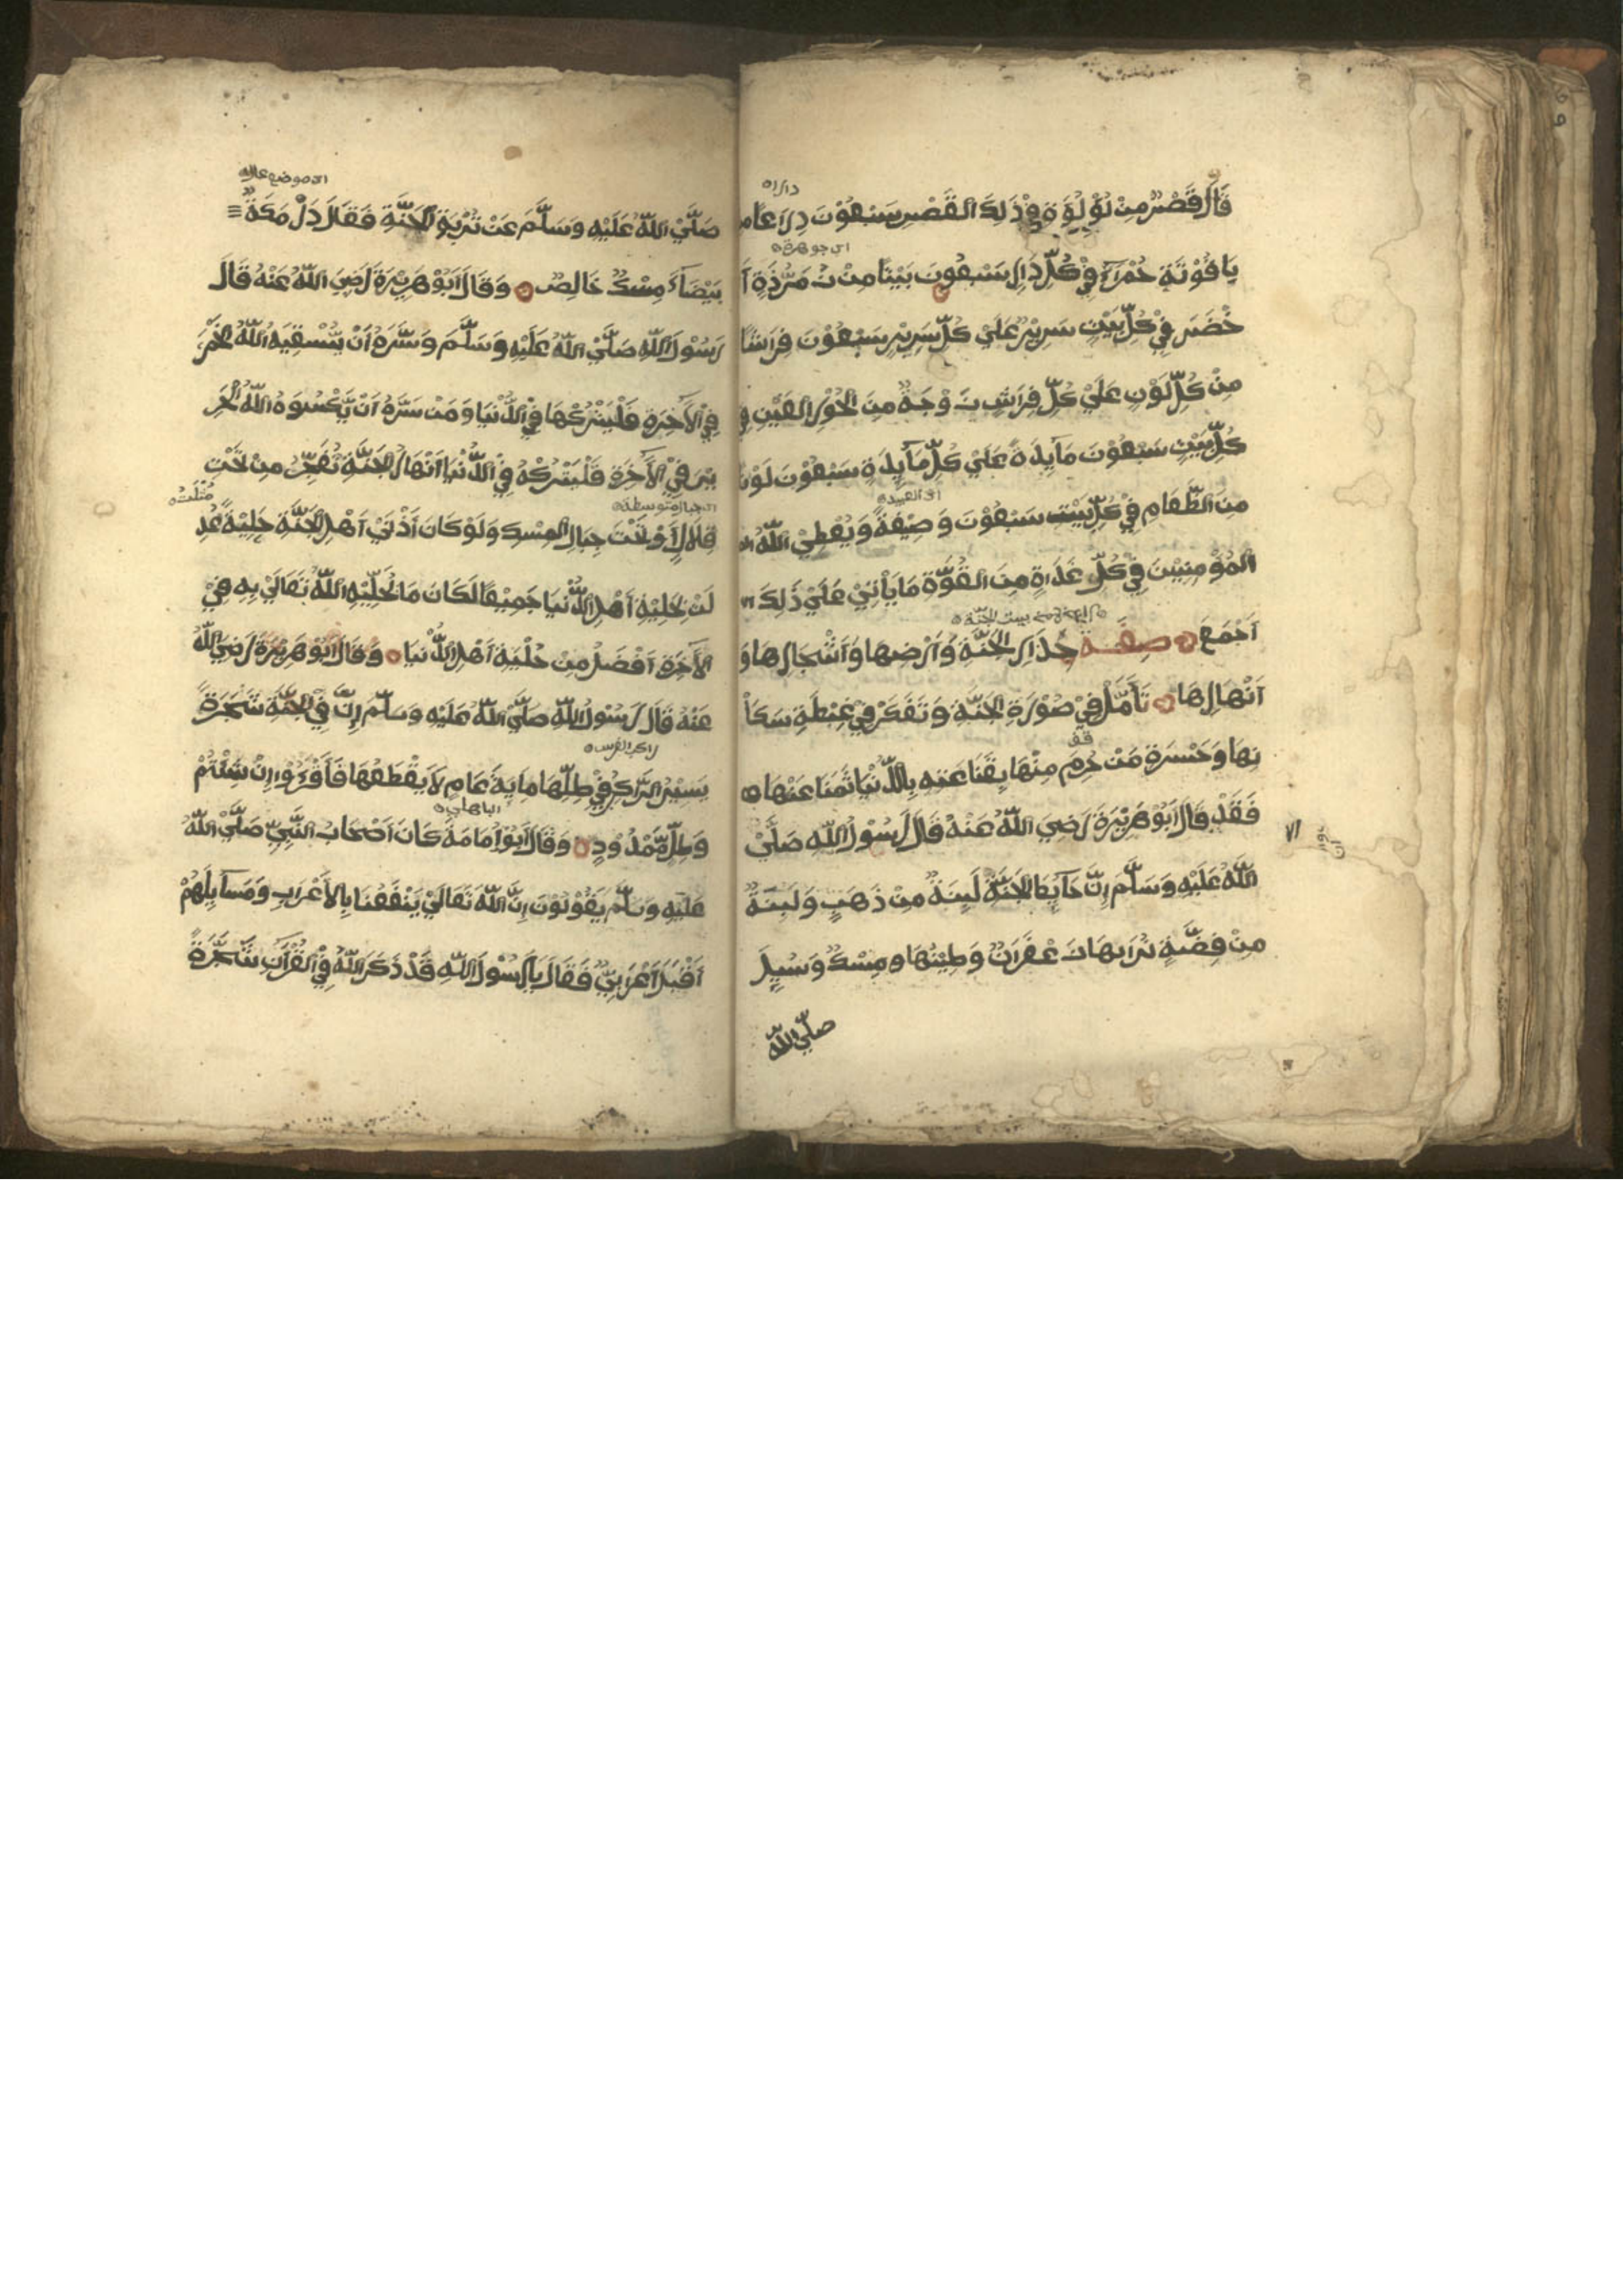 داراه
قَالَ قَصْرٌ مِنْ لُؤْلُؤَةٍ فِيْ ذَلِكَ الْقَصْرِ سَبْعُوْنَ دَارًا
اى جوهرة
يَاقُوْتَةٍ حُمْرَآءَ فِيْ كُلِّ دَارٍ سَبْعُوْنَ بَيْتًا مِنْ زُمَرُّذَةٍ
خَضَرَ فِيْ كُلِّ بَيْتٍ سَرِيْرٌ عَلَيْ كُلِّ سَرِيْرٍ سَبْعُوْنَ فِرَاشًا
مِنْ كُلِّ لَوْنٍ عَلَيْ كُلِّ فِرَاشٍ زَوْجَةٌ مِنَ الْحُوْرِ الْعَيْنِ
كُلِّ بَيْتٍ سَبْعُوْنَ مَآيِدَةً عَلَيْ كُلِّ مَآيِدَةٍ سَبْعُوْنَ لَوْنًا
اى العبيد
مِنَ الطَّعَامِ فِيْ كُلِّ بَيْتٍ سَبْعُوْنَ وَصِيْفَةً وَيُعْطِيْ اللّٰهُ
الْمُؤْمِنِيْنَ فِيْ كُلِّ غَدَاةٍ مِنَ الْقُوَّةِ مَا يَأْتِيْ عَلَيْ ذَلِكَ
بيت الجنة
اَجْمَعَ صِفَةُ جِدَارِ الْجَنَّةِ وَاَرْضِهَا وَاَشْجَارِهَا وَ
اَنْهَارِهَا تَأَمَّلْ فِيْ صُوْرَةِ الْجَنَّةِ وَتَفَكَّرْ فِيْ غِبْطَةِ سَكَا
نِهَا وَحَسْرَةِ مَنْ حُرِمَ مِنْهَا بِقَنَاعَتِهِ بِالدُّنْيَا ثَمَنًا عَنْهَا
فَقَدْ قَالَ اَبُوْ هُرَيْرَةَ رَضِيَ اللّٰهُ عَنْهُ قَالَ رَسُوْلُ اللّٰهِ صَلَّيْ
اللّٰهُ عَلَيْهِ وَسَلَّمَ اِنَّ حَآيِطَ الْجَنَّةِ لَبِنَةٌ مِنْ ذَهَبٍ وَلَبِنَةٌ
مِنْ فِضَّةٍ تُرَابُهَا زَعْفَرَانٌ وَطِيْنُهَا مِسْكٌ وَسُيِلَ
صلّي اللّٰه
اى موضع عاليه
صَلَّيْ اللّٰهُ عَلَيْهِ وَسَلَّمَ عَنْ تُرْبَةِ الْجَنَّةِ فَقَالَ دَرْمَكَةٌ
بَيْضَآءُ مِسْكٌ خَالِصٌ وَقَالَ اَبُوْ هُرَيْرَةَ رَضِيَ اللّٰهُ عَنْهُ قَالَ
رَسُوْلُ اللّٰهِ صَلَّيْ اللّٰهُ عَلَيْهِ وَسَلَّمَ وَسَّرَهُ اَنْ يَّسْقِيَهُ اللّٰهُ الْخَمْرَ
فِي الْاٰخِرَةِ فَلْيَتْرُكْهَا فِيْ الدُّنْيَا وَمَنْ سَرَّهُ اَنْ يَّكْسُوَهُ اللّٰهُ الْحَرِ
يْرَ فِيْ الْاٰخِرَةِ فَلْيَتْرُكْهُ فِيْ الدُّنْيَا اَنْهَارُ الْجَنَّةِ تُفَجَّرُ مِنْ تَحْتِ
اى جبال متوسطة
مُثِّلَتْ
تِلَالٍ اَوْ تَحْتَ جِبَالِ الْمِسْكِ وَلَوْ كَانَ اَدْنَيْ اَهْلِ الْجَنَّةِ حِلْيَةً عُدِ
لَتْ بِحِلْيَةِ اَهْلِ الدُّنْيَا جَمِيْعًا لَكَانَ مَا يُحَلِّيْهِ اللّٰهُ تَعَالَيْ بِهِ فِيْ
الْاٰخِرَةِ اَفْضَلُ مِنْ حُلْيَةِ اَهْلِ الدُّنْيَا وَقَالَ اَبُوْ هُرَيْرَةَ رَضِيَ اللّٰهُ
عَنْهُ قَالَ رَسُوْلُ اللّٰهِ صَلَّيْ اللّٰهُ عَلَيْهِ وَسَلَّمَ اِنَّ فِيْ الْجَنَّةِ شَجَرَةً
راكب الفرس
يَسِيْرُ الرَّاكِبُ فِيْ ظِلِّهَا مِايَةَ عَامٍ لَا يَقْطَعُهَا فَاقْرَءُوْا اِنْ شِئْتُمْ
الباهلي
وَظِلٍّ مَّمْدُوْدٍ وَقَالَ اَبُوْ اُمَامَةَ كَانَ اَصْحَابُ النَّبِيِّ صَلَّيْ اللّٰهُ
عَلَيْهِ وَسَلَّمَ يَقُوْلُوْنَ اِنَّ اللّٰهَ تَعَالَيْ يَنْفَعُنَا بِالْاَعْرَابِ وَمَسَآيِلِهُمْ
اَقْبَلَ اَعْرَابِيٌّ فَقَالَ يَا رَسُوْلَ اللّٰهِ قَدْ ذَكَرَ اللّٰهُ فِيْ الْقُرْآنِ شَجَرَةً